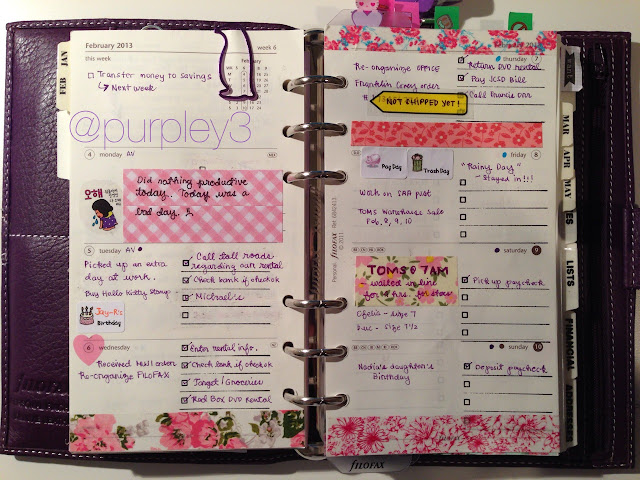 February 2013
week 6
this week
Transfer money to savings
↳ Next week
JAN
FEB
@purpley3
4 monday AV
Did nothing productive
today.. Today was a
bad day.
오해
5 tuesday AV
Picked up an extra
day at work.
Buy Hello Kitty Stamp
Jay-R's
Birthday
Call Call roads
regarding car rental
Check bank if check ok
Michael's
6 wednesday
Received HWJ order
Re-organize FILOFAX
Enter rental info.
Check bank if check ok
Target / Groceries
Red Box DVD Rental
thursday 7
Re-organize OFFICE
Franklin Covey order
NOT SHIPPED YET!
Return DVD rental
Pay JCSD Bill
Call Francis Orr
friday 8
Pay Day
Trash Day
"Rainy Day"
- Stayed in!!!
Work on SAA plot
TOMS Warehouse Sale
Feb. 8, 9, 10
saturday 9
TOMS @ 7AM
waited in line
for 4 hrs. for shoes
Pick up paycheck
Ofelia - size 7
size 7 1/2
sunday 10
Nadia's daughter's
Birthday
Deposit paycheck
Personal filofax Ref. 6802613
© 2011
MAR
APR
MAY
LISTS
FINANCIAL
ADDRESS
filofax